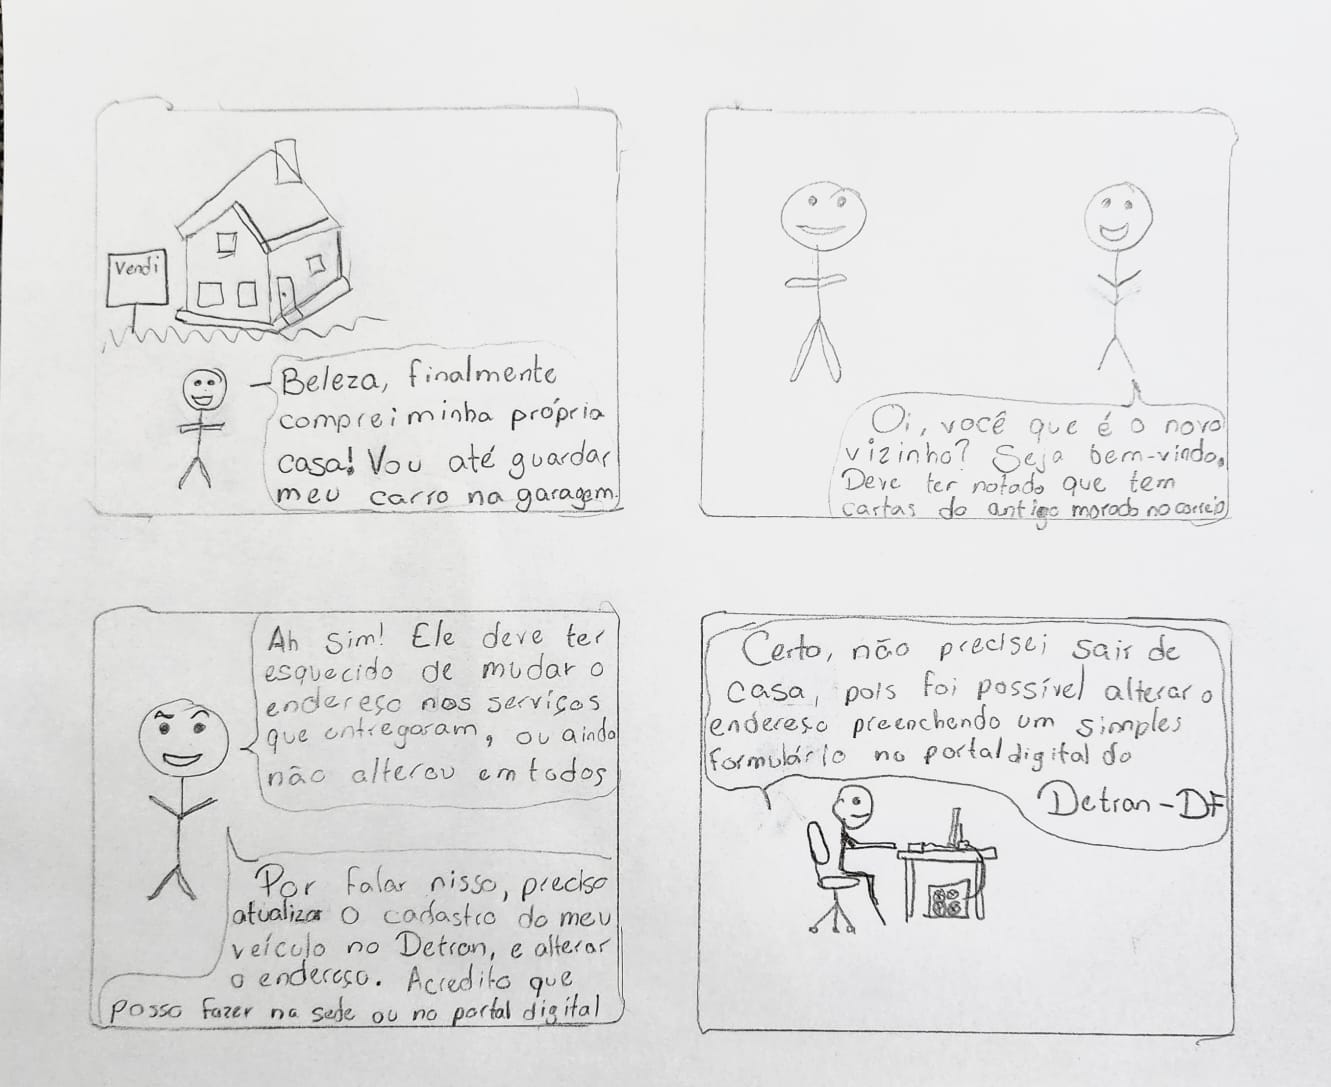 Vendi
Beleza, finalmente
comprei minha própria
casa! Vou até guardar
meu carro na garagem.
Oi, você que é o novo
vizinho? Seja bem-vindo.
Deve ter notado que tem
cartas do antigo morado no correio
Ah sim! Ele deve ter
esquecido de mudar o
endereço nos serviços
que entregaram, ou ainda
não alterou em todos
Por falar nisso, preciso
atualizar o cadastro do meu
veículo no Detran, e alterar
o endereço. Acredito que
posso fazer na sede ou no portal digital
Certo, não precisei sair de
casa, pois foi possível alterar o
endereço preenchendo um simples
formulário no portal digital do
Detran-DF